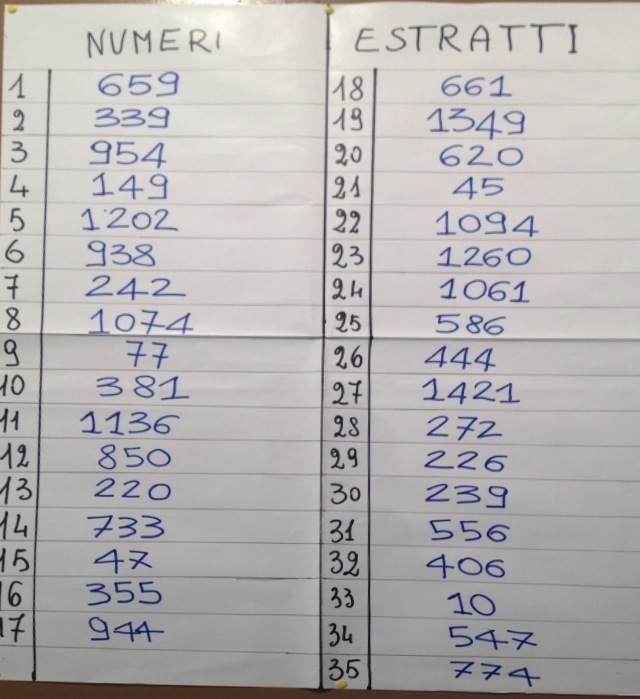 NUMERI ESTRATTI
1 659
2 339
3 954
4 149
5 1202
6 938
7 242
8 1074
9 77
10 381
11 1136
12 850
13 220
14 733
15 47
16 355
17 944
18 661
19 1349
20 620
21 45
22 1094
23 1260
24 1061
25 586
26 444
27 1421
28 272
29 226
30 239
31 556
32 406
33 10
34 547
35 774